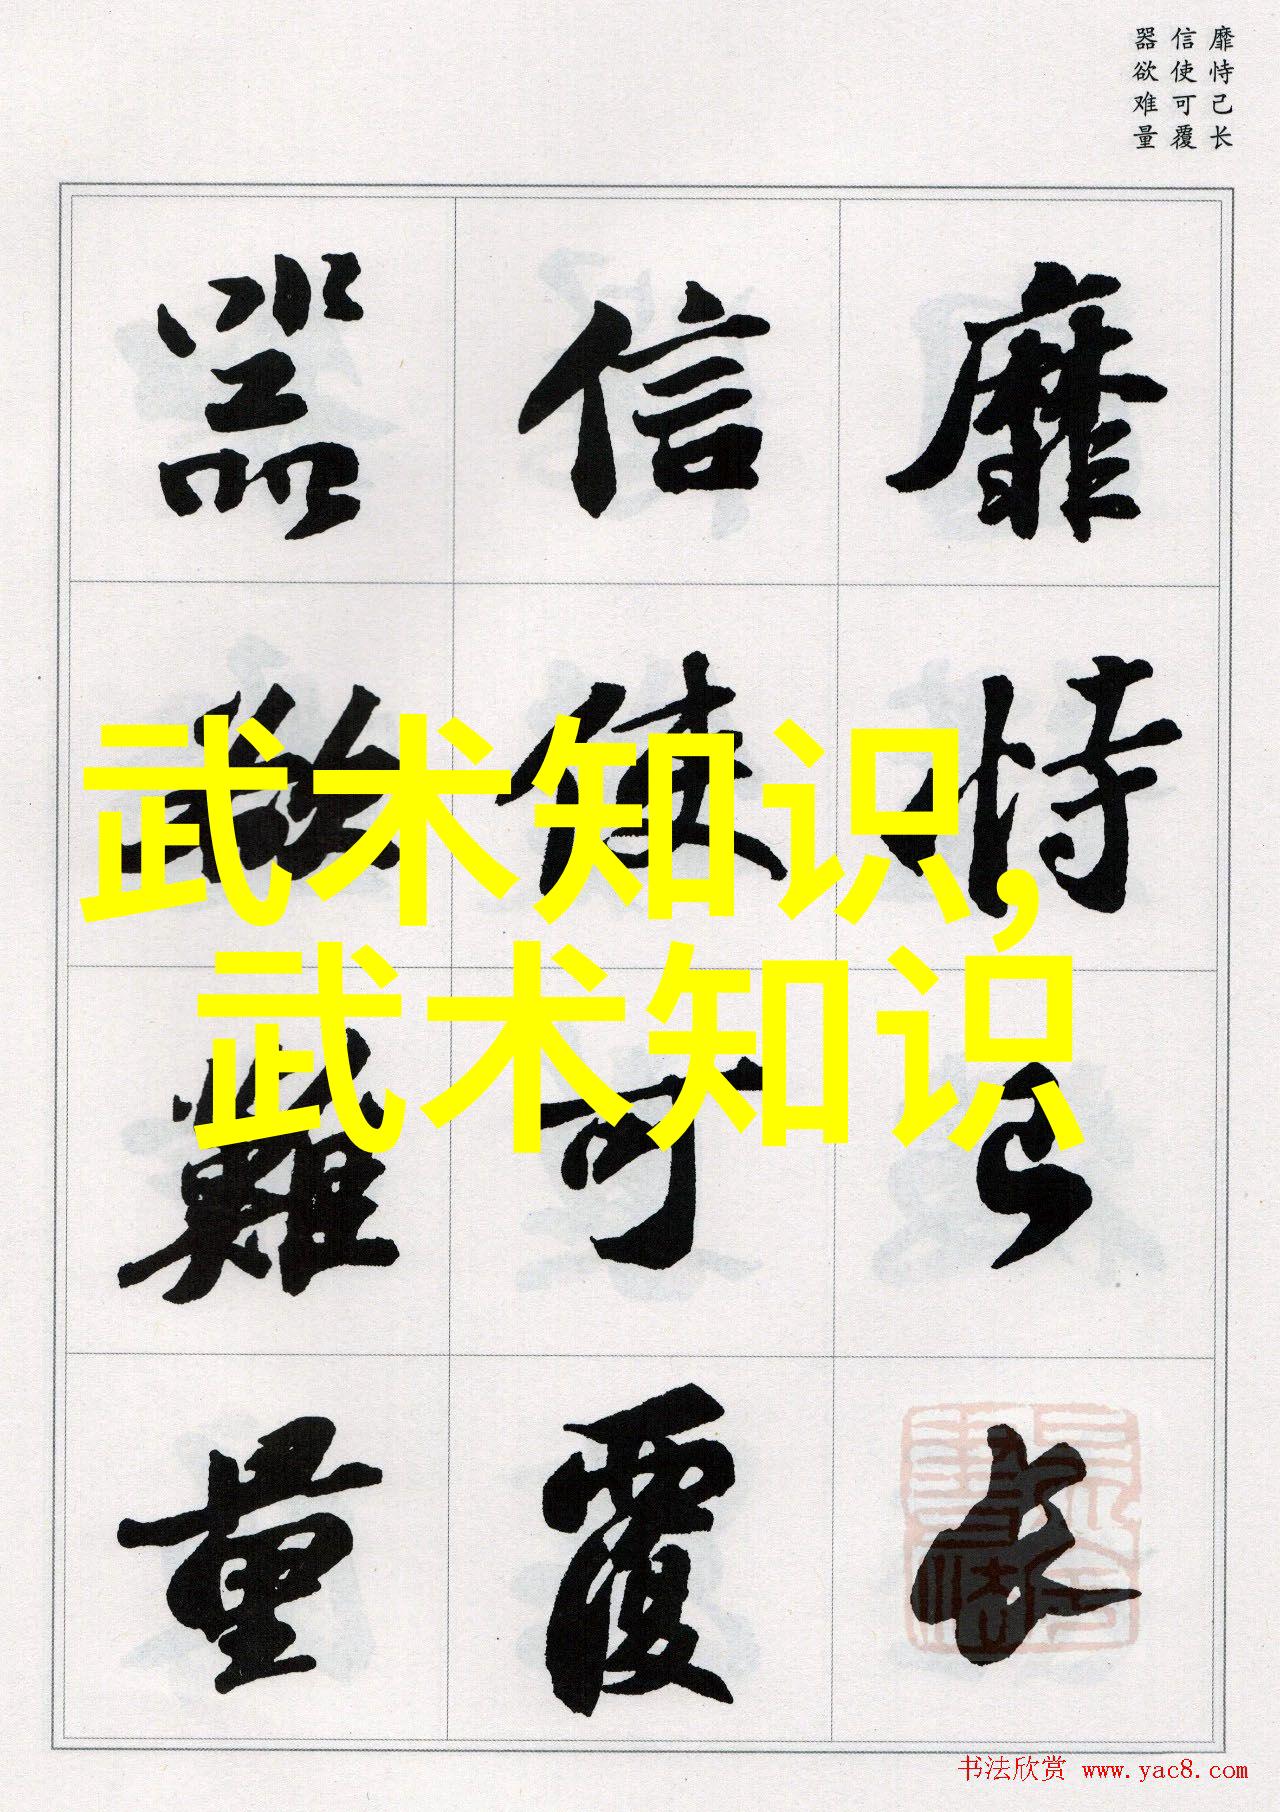 靡恃己长
信使可覆
器欲难量
靡恃己长
信使可覆
器欲難量
武术知识,
武术知识
书法欣赏 www.yac8.com